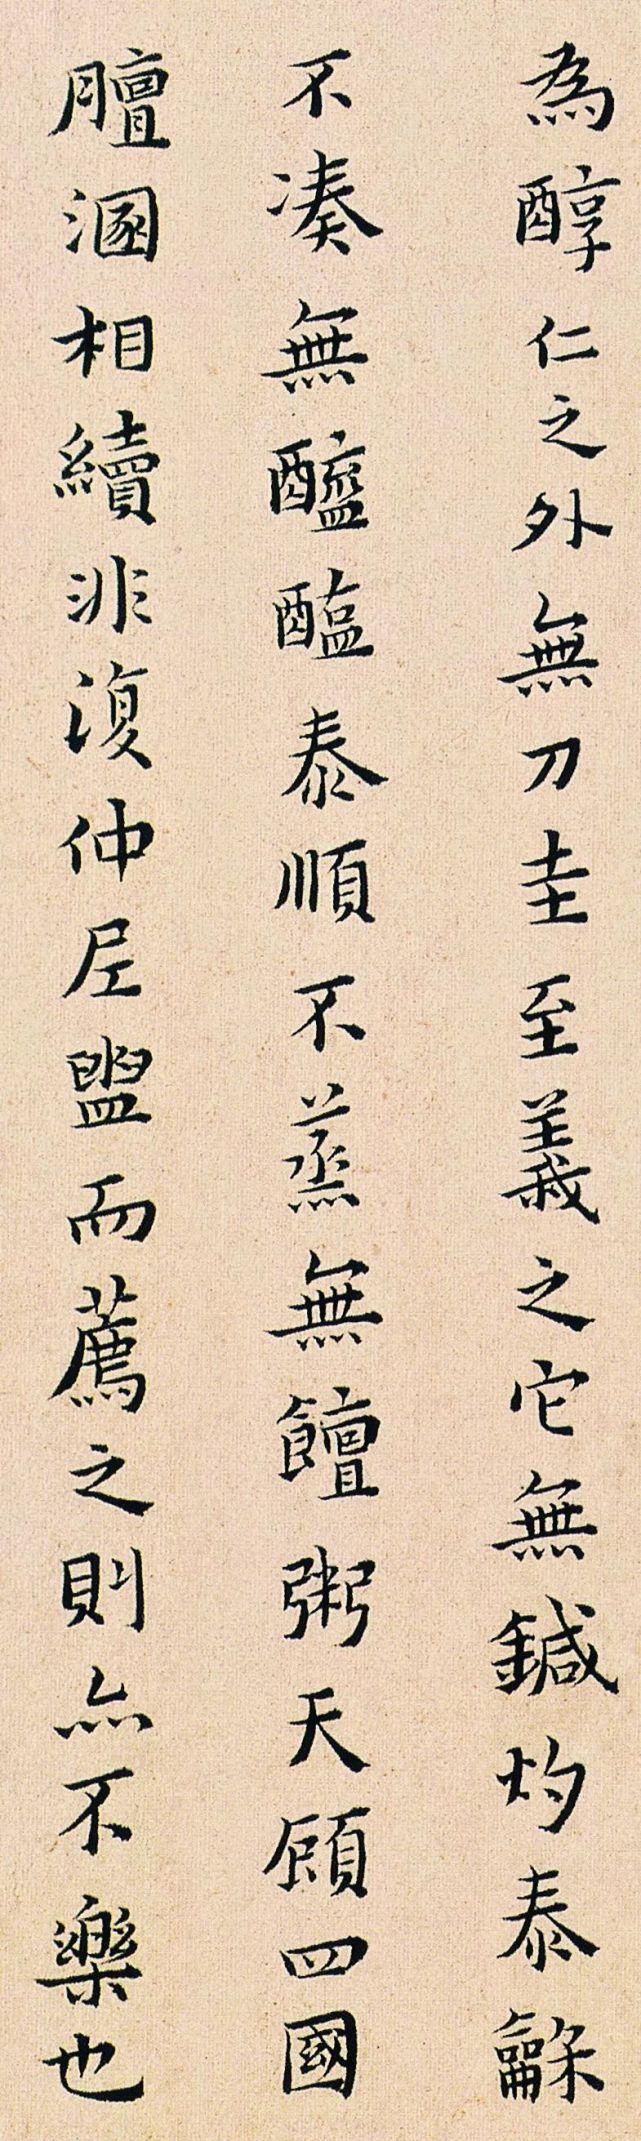 為醇仁之外無刀圭至義之它無鍼灼泰龢
不凑無醯醢泰順不蒸無饘粥天顧四國
膻溷相續非復仲尼盥而薦之則亦不樂也